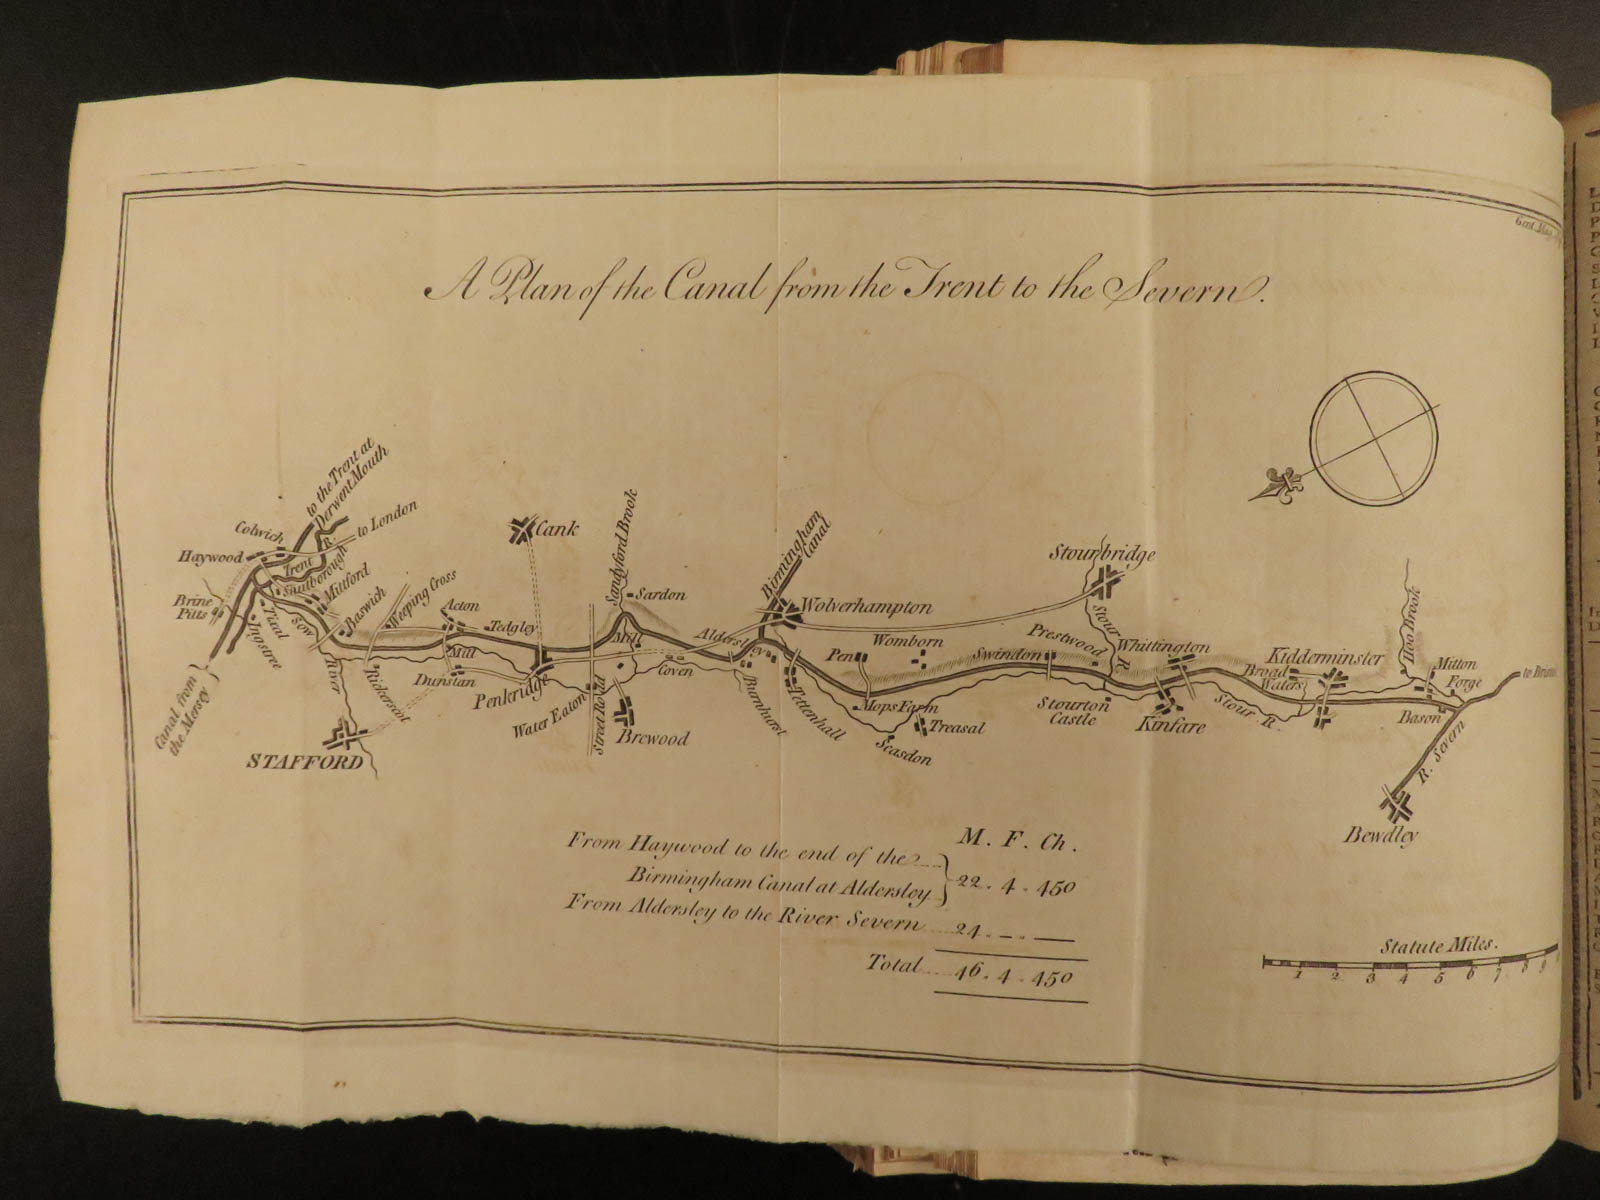 Gent. Mag.
A Plan of the Canal from the Trent to the Severn.
to the Trent at
Derwent Mouth
Colwich
to London
Haywood
Trent R.
Shutborough
Brine
Pitts
Milford
Baswich
Weeping Cross
Tixal
Sow
River
Ingstree
Canal from
the Mersey
STAFFORD
Rickerscot
Acton
Tedgley
Mill
Dunstan
Penkridge
Cank
Water Eaton
Street Road
Brewood
Sandyford Brook
Sardon
Mill
Coven
Birmingham
Canal
Wolverhampton
Aldersley
Burnhurst
Tettenhall
Pen
Womborn
Mops Farm
Treasal
Seasdon
Swindon
Stourbridge
Stour R.
Prestwood
Stourton
Castle
Whittington
Kinfare
Stour R.
Kidderminster
Broad
Waters
Hoo Brook
Mitton
Forge
Bason
R. Severn
Bewdley
M. F. Ch.
From Haywood to the end of the
Birmingham Canal at Aldersley
22. 4. 450
From Aldersley to the River Severn
24. - . —
Total 46. 4. 450
Statute Miles.
1 2 3 4 5 6 7 8 9